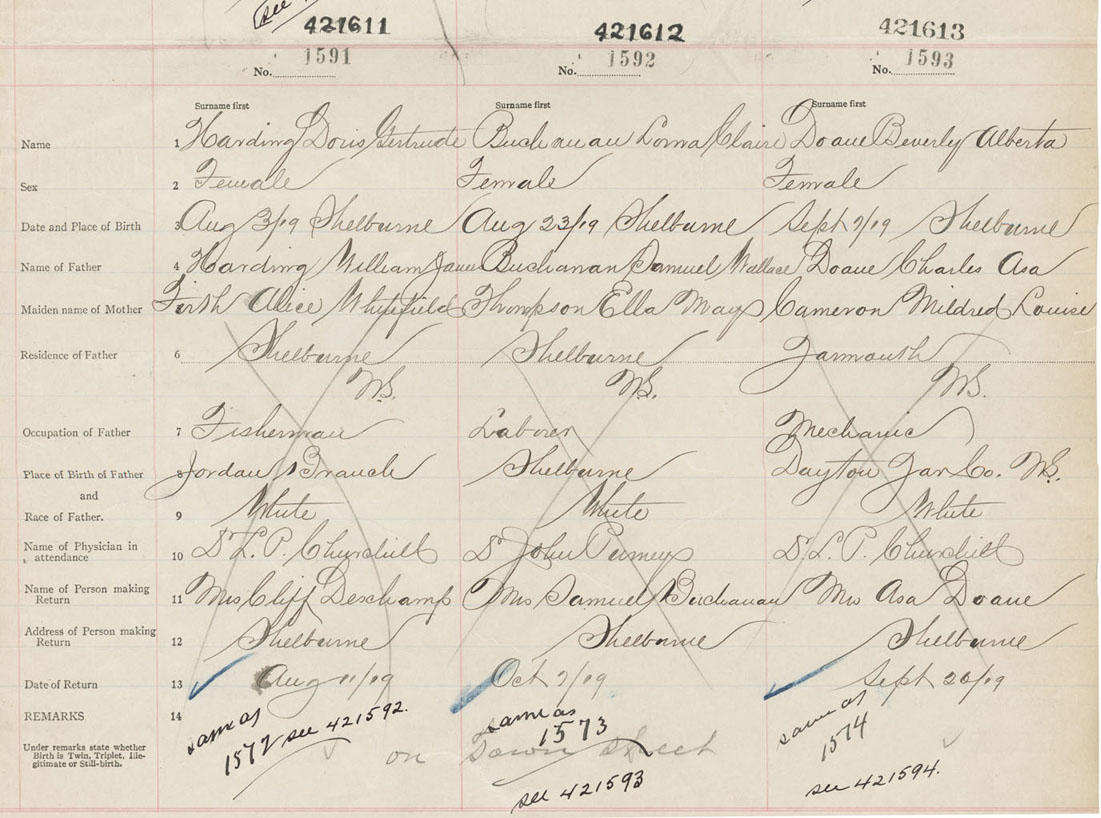 see
421611 421612 421613
1591 1592 1593
No. No. No.
Surname first Surname first Surname first
Name 1 Harding Doris Gertrude Buchanan Lorna Claire Doane Beverly Alberta
Sex 2 Female Female Female
Date and Place of Birth 3 Aug 3/19 Shelburne Aug 23/19 Shelburne Sept 7/19 Shelburne
Name of Father 4 Harding William James Buchanan Samuel Wallace Doane Charles Asa
Maiden name of Mother Firth Alice Whitfield Thompson Ella May Cameron Mildred Louise
Residence of Father 6 Shelburne Shelburne Yarmouth
N.S. N.S. N.S.
Occupation of Father 7 Fisherman Laborer Mechanic
Place of Birth of Father 8 Jordan Branch Shelburne Dayton Yar Co. N.S.
and
Race of Father. 9 White White White
Name of Physician in
attendance 10 Dr L. P. Churchill Dr John Dr L. P. Churchill
Name of Person making
Return 11 Mrs Cliff Deschamp Mrs Samuel Buchanan Mrs Asa Doane
Address of Person making
Return 12 Shelburne Shelburne Shelburne
Date of Return 13 Aug 11/19 Oct 7/19 Sept 20/19
REMARKS 14 same as same as same as
1572 see 421592. 1573 1574
Under remarks state whether
Birth is Twin, Triplet, Ille-
gitimate or Still-birth.
on Down Sheet
see 421593 see 421594.